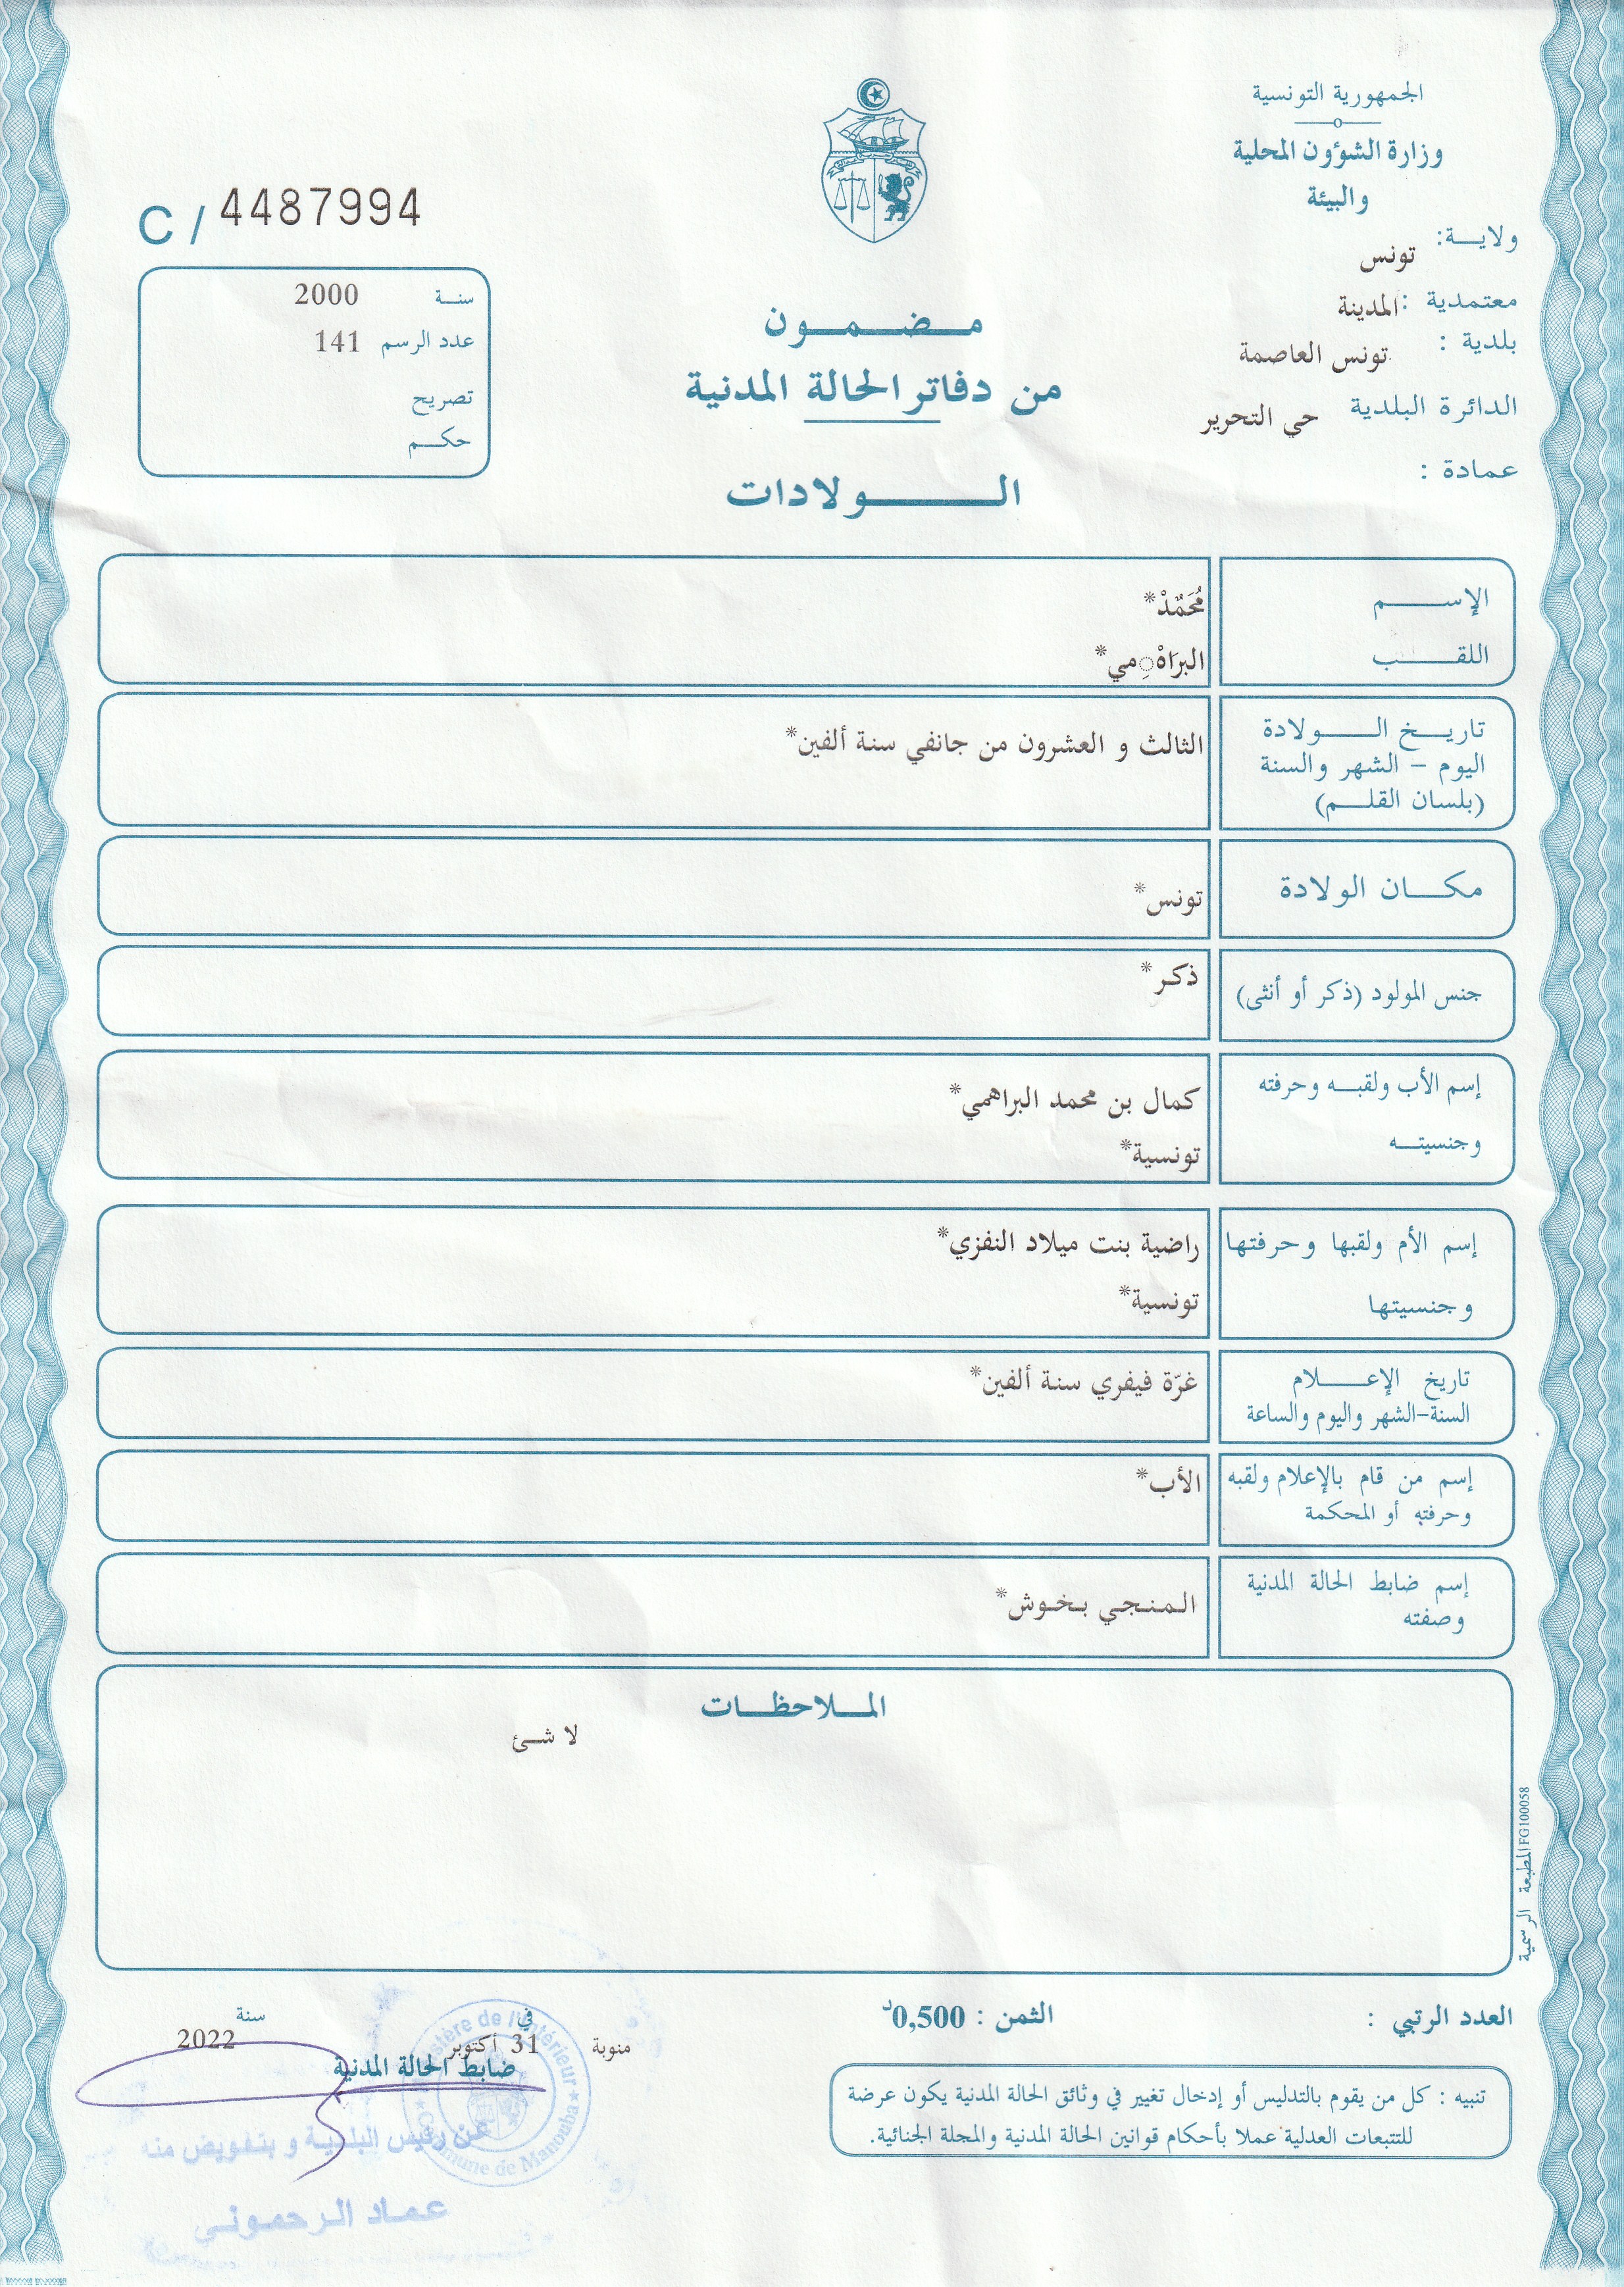 الجمهورية التونسية
وزارة الشؤون المحلية
والبيئة
ولايـــة: تونس
معتمدية : المدينة
بلدية : تونس العاصمة
الدائرة البلدية حي التحرير
عمادة :
C / 4487994
سنـة 2000
عدد الرسم 141
تصريح
حكــم
مــضــمــون
من دفاتر الحالة المدنية
الـــــولادات
الإســــــم مُحَمَّدْ*
اللقـــــب البرَاهْ◌ِمي*
تاريـــخ الـــــولادة
اليوم – الشهر والسنة
(بلسان القلـــم)
الثالث و العشرون من جانفي سنة ألفين*
مكـــان الولادة تونس*
جنس المولود (ذكر أو أنثى) ذكر*
إسم الأب ولقبــه وحرفته كمال بن محمد البراهمي*
وجنسيتــه تونسية*
إسم الأم ولقبها وحرفتها راضية بنت ميلاد النفزي*
وجنسيتها تونسية*
تاريخ الإعــــلام
السنة–الشهر واليوم والساعة
غرّة فيفري سنة ألفين*
إسم من قام بالإعلام ولقبه
وحرفته أو المحكمة
الأب*
إسم ضابط الحالة المدنية
وصفته
المنجي بخوش*
المـــلاحظــات
لا شئ
المطبعة الرسمية FG100058
العدد الرتبي :
الثمن : 0,500د
منوبة في 31 أكتوبر سنة 2022
ضابط الحالة المدنية
عن رئيس البلدية و بتفويض منه
عماد الرحموني
Ministère de l'Intérieur
Commune de Manouba
تنبيه : كل من يقوم بالتدليس أو إدخال تغيير في وثائق الحالة المدنية يكون عرضة
للتتبعات العدلية عملا بأحكام قوانين الحالة المدنية والمجلة الجنائية.